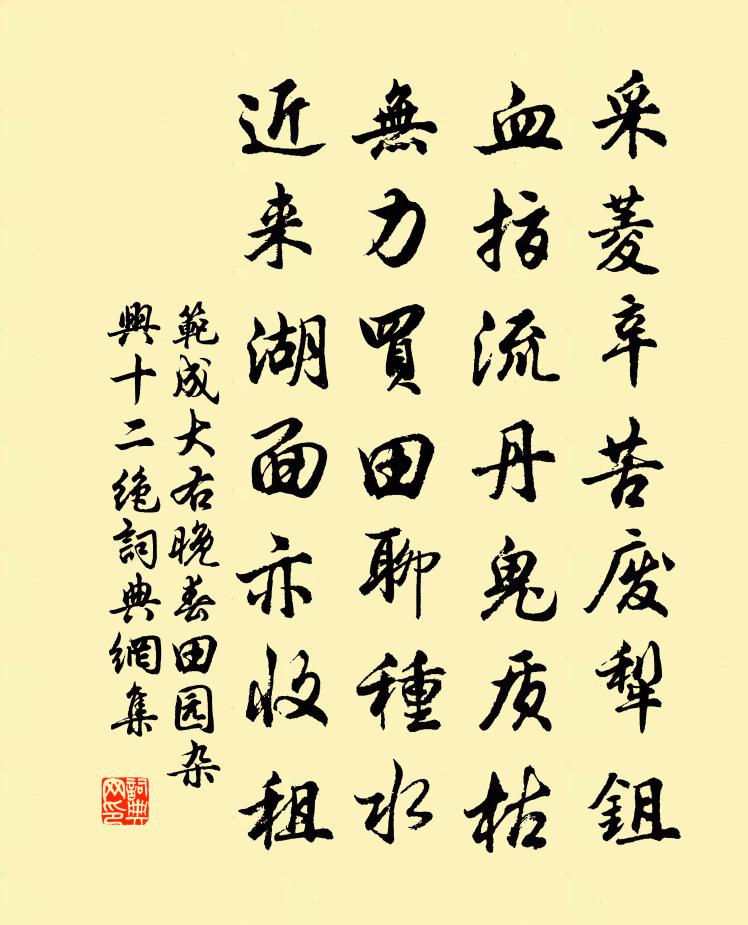 采菱辛苦废犁鉏
血指流丹鬼质枯
無力買田聊種水
近来湖面亦收租
範成大右晚春田园杂
興十二绝詞典網集
詞典
网印